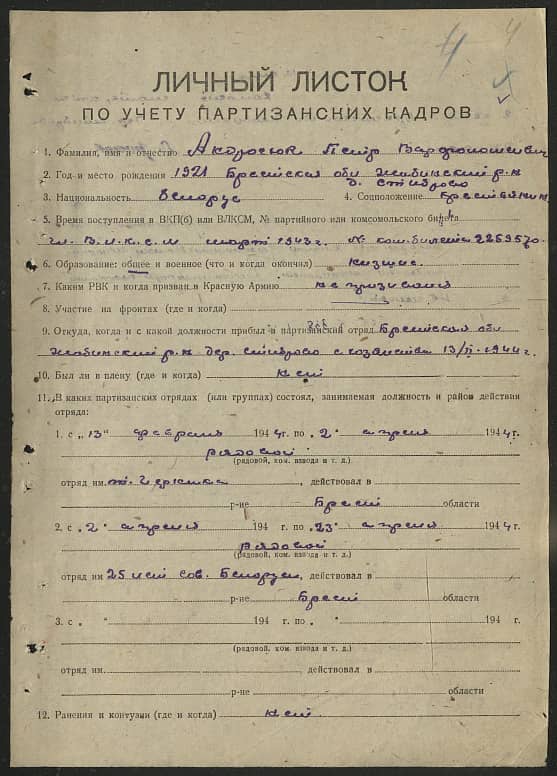 4 4
ЛИЧНЫЙ ЛИСТОК
ПО УЧЕТУ ПАРТИЗАНСКИХ КАДРОВ
1. Фамилия, имя и отчество Петр Варфоломеевич
2. Год и место рождения 1921 Брестская обл Жабинский р-н
д. Стиброво
3. Национальность белорус 4. Соцположение крестьянин
5. Время поступления в ВКП(б) или ВЛКСМ, № партийного или комсомольского билета
чл. В.Л.К.С.М март 1943 г. № ком. билета
6. Образование: общее и военное (что и когда окончил) низшее
7. Каким РВК и когда призван в Красную Армию не призывался
8. Участие на фронтах (где и когда)
9. Откуда, когда и с какой должности прибыл в партизанский отряд Брестская обл
Жабинский р-н дер. Стиброво с хозяйства 13/II-1944 г.
10. Был ли в плену (где и когда) нет
11. В каких партизанских отрядах (или группах) состоял, занимаемая должность и район действия
отряда:
1. с „13" февраля 1944 г. по „2" апреля 1944 г.
рядовой
(рядовой, ком. взвода и т. д.)
отряд им. , действовал в
р-не Брест области
2. с „2" апреля 194 г. по „23" апреля 1944 г.
рядовой
(рядовой, ком. взвода и т. д.)
отряд им 25 лет Сов. Белорусс , действовал в
р-не Брест области
3. с „ " 194 г. по „ " 194 г.
(рядовой, ком. взвода и т. д.)
отряд им. действовал в
р-не области
12. Ранения и контузии (где и когда) нет